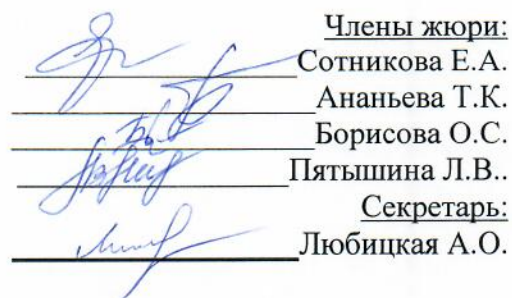 Члены жюри:
Сотникова Е.А.
Ананьева Т.К.
Борисова О.С.
Пятышина Л.В..
Секретарь:
Любицкая А.О.